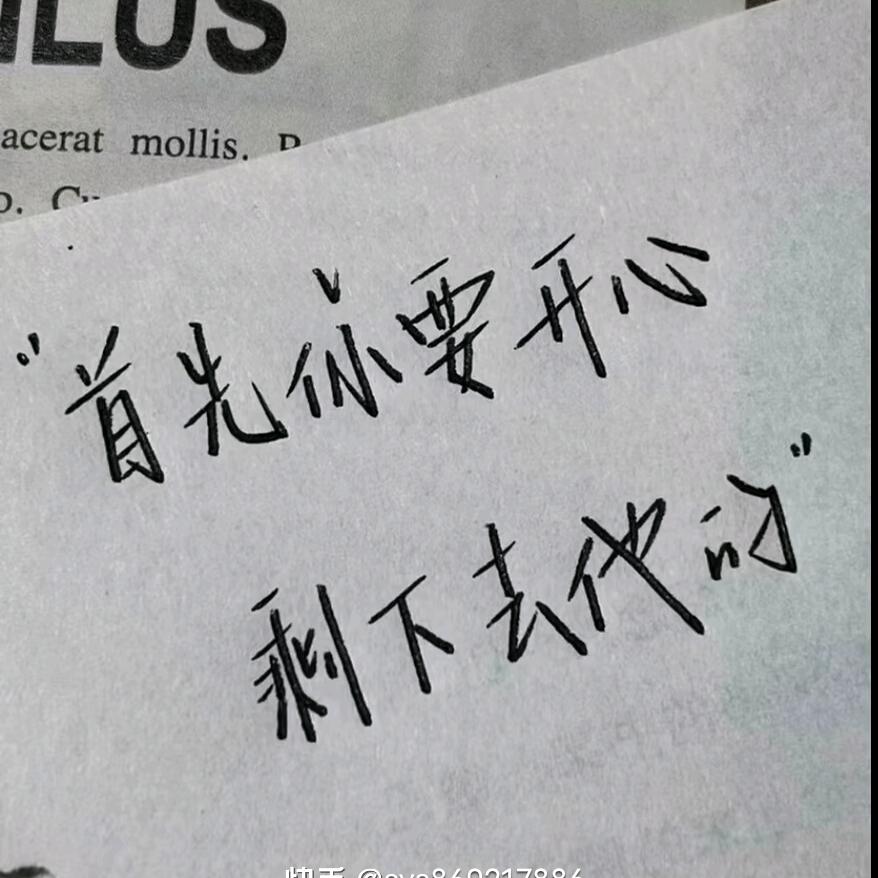 LUS
acerat mollis.
"首先你要开心
剩下去他的"
快手